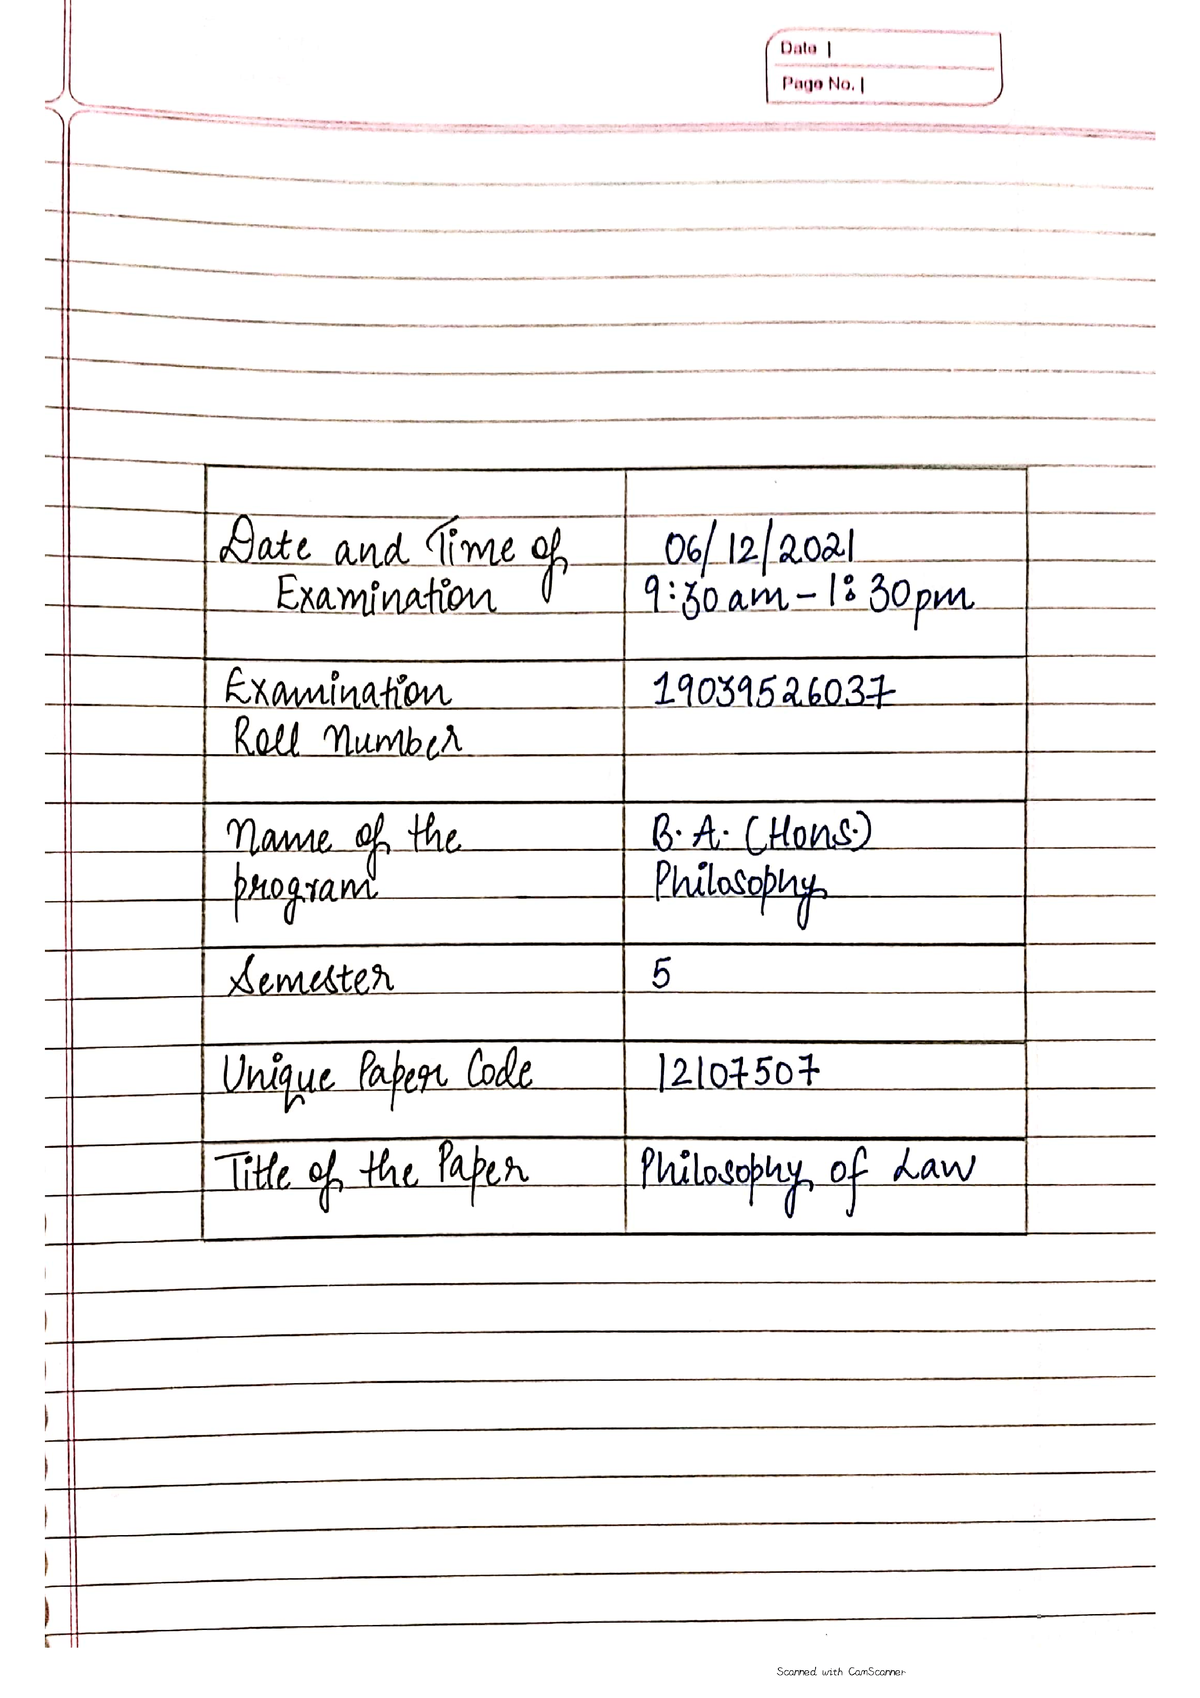 Date |
Page No. |
Date and Time of 06/12/2021
Examination 9:30 am - 1:30 pm
Examination 19039526037
Roll Number
Name of the B.A. (Hons.)
program Philosophy
Semester 5
Unique Paper Code 12107507
Title of the Paper Philosophy of Law
Scanned with CamScanner